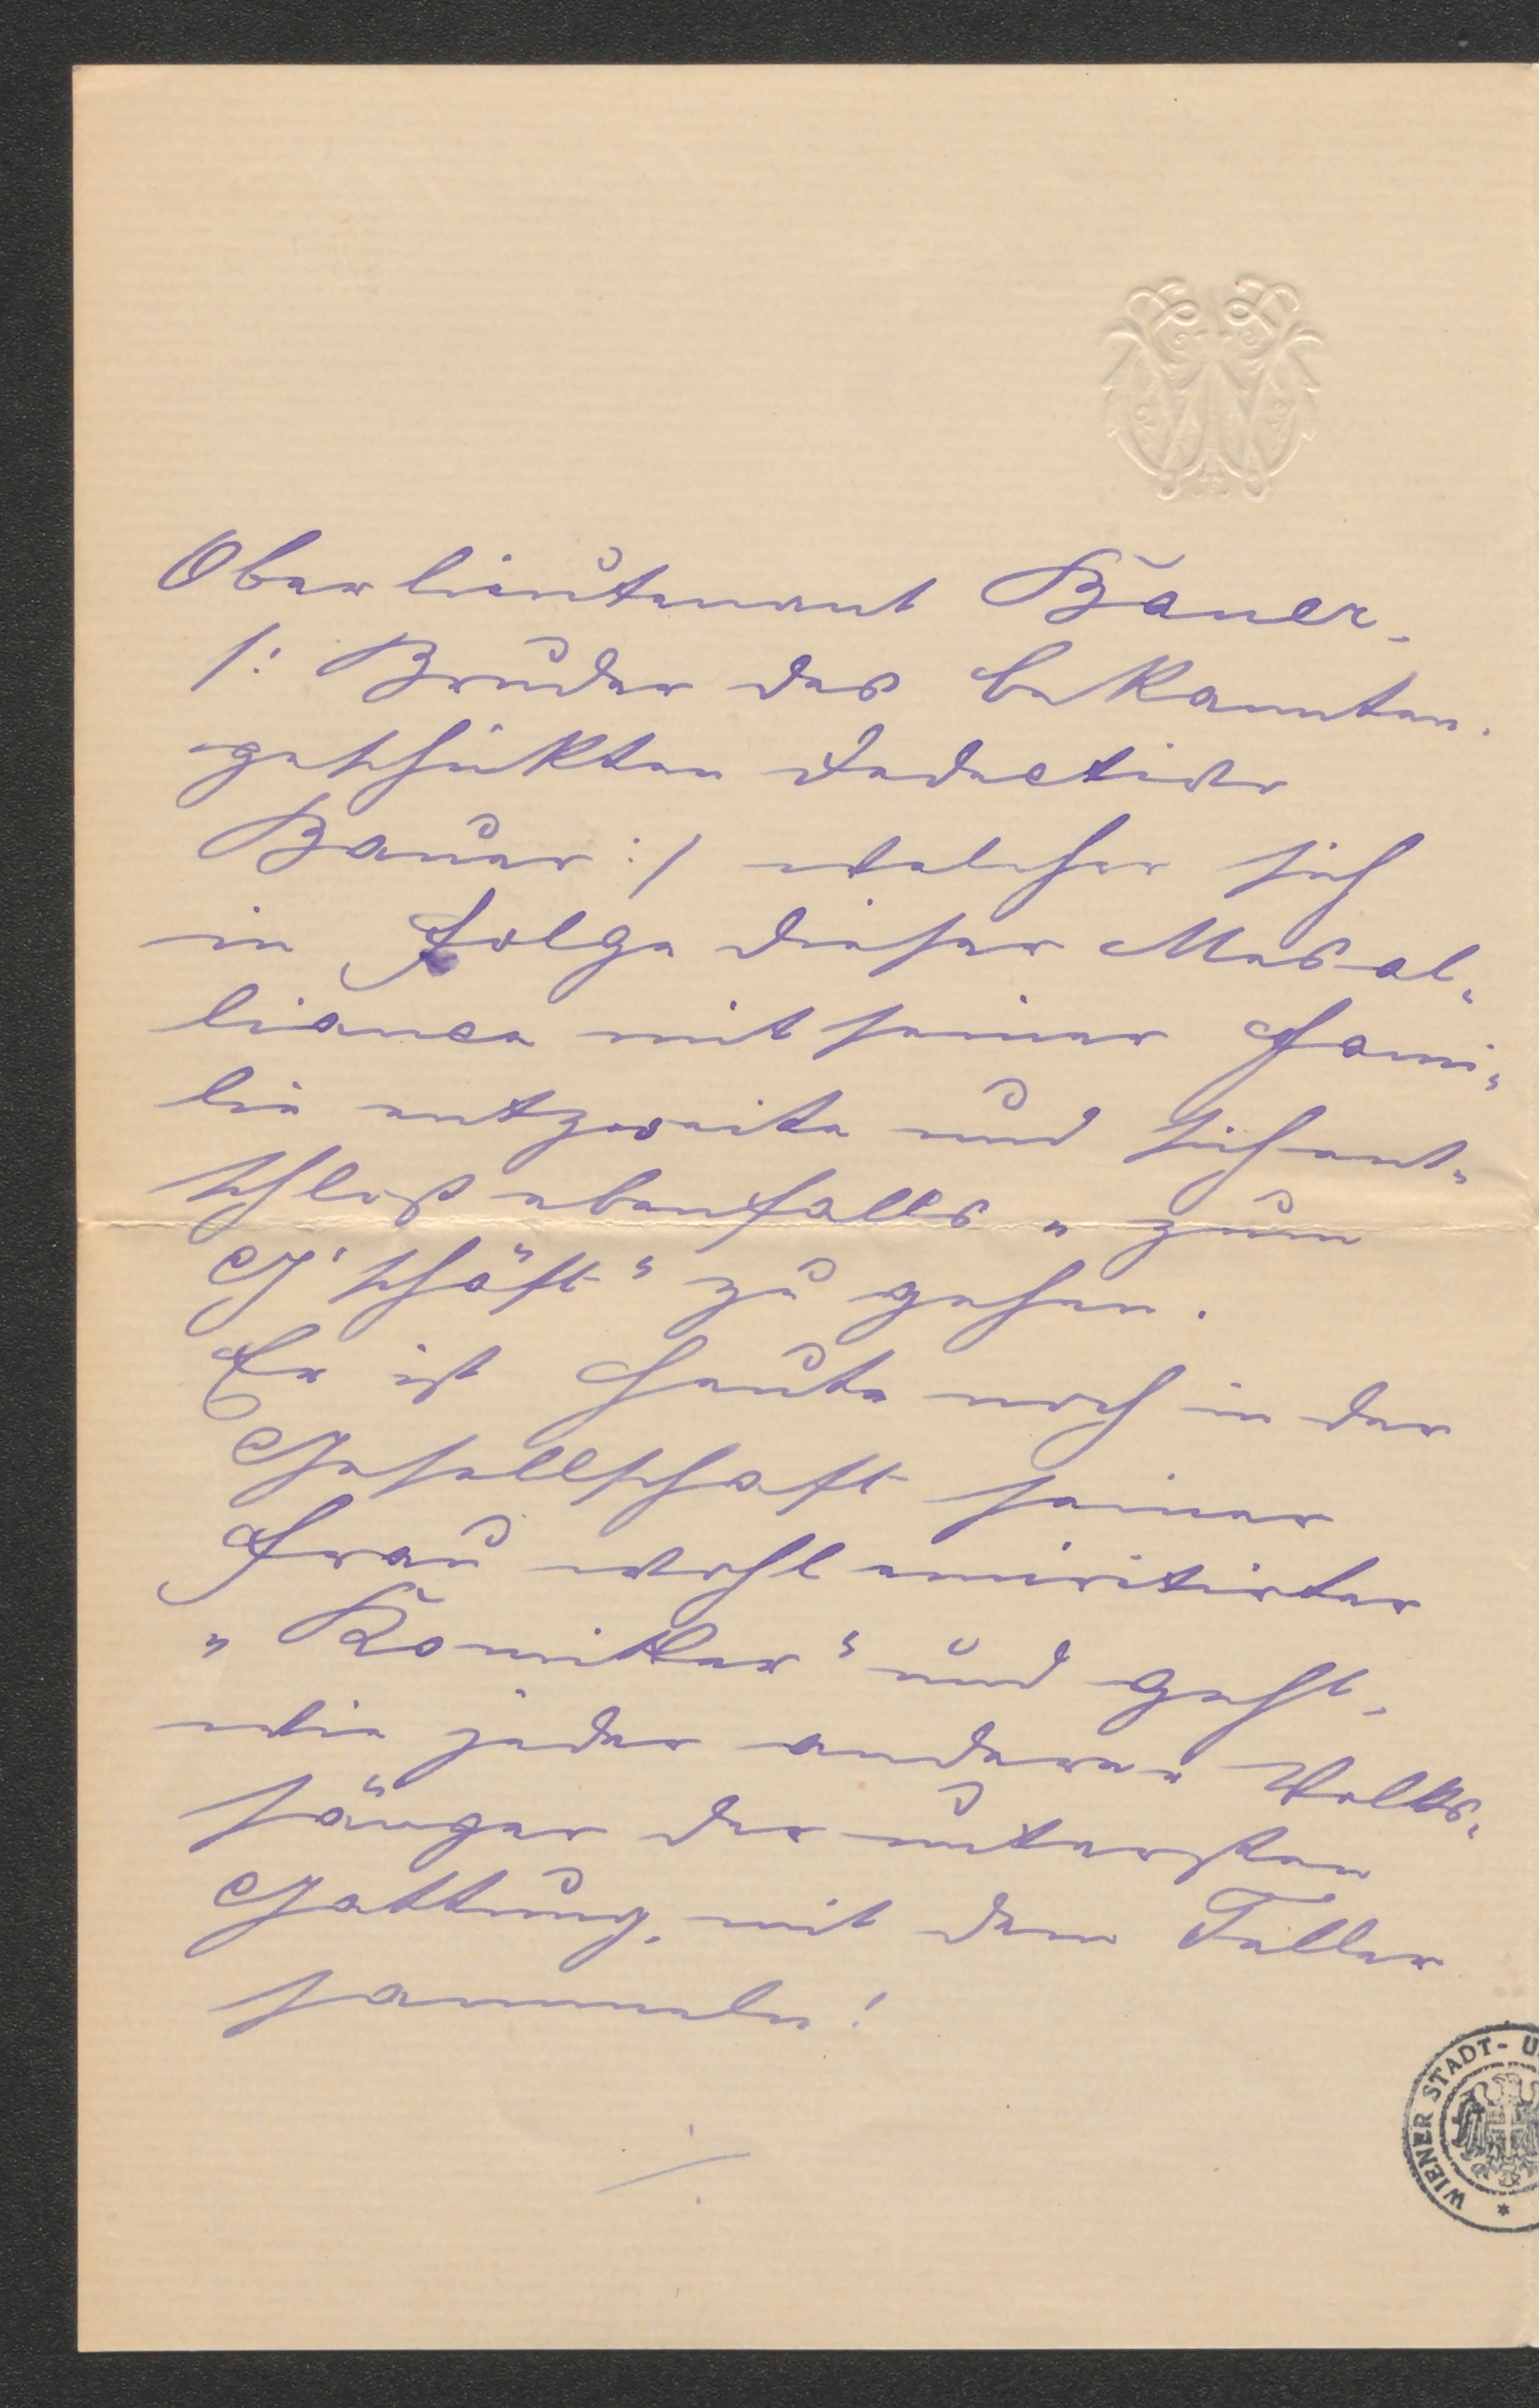 Oberlieutenant Bauer,
/: Bruder des bekannten,
geschickten Dedectivs
Bauer :/ welcher sich
in Folge dieser Mesal„
liance mit seiner Fami„
lie entzweite und sich ent„
schloß ebenfalls „zum
G'schäft“ zu gehen.
Er ist heute noch in der
Gesellschaft seiner
Frau wohlemiritirter
„Komiker“ und geht,
wie jeder andere Volks„
sänger der untersten
Gattung, mit dem Teller
sammeln!
WIENER STADT- U